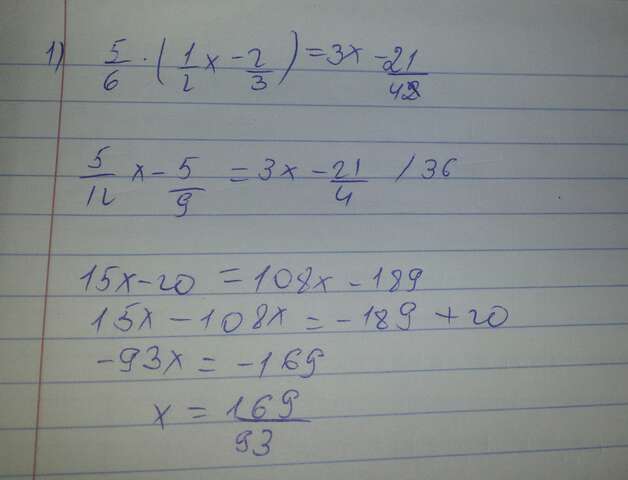 1) 5/6 · (1/2 x - 2/3) = 3x - 21/42
5/12 x - 5/9 = 3x - 21/4 / 36
15x - 20 = 108x - 189
15x - 108x = -189 + 20
-93x = -169
x = 169/93